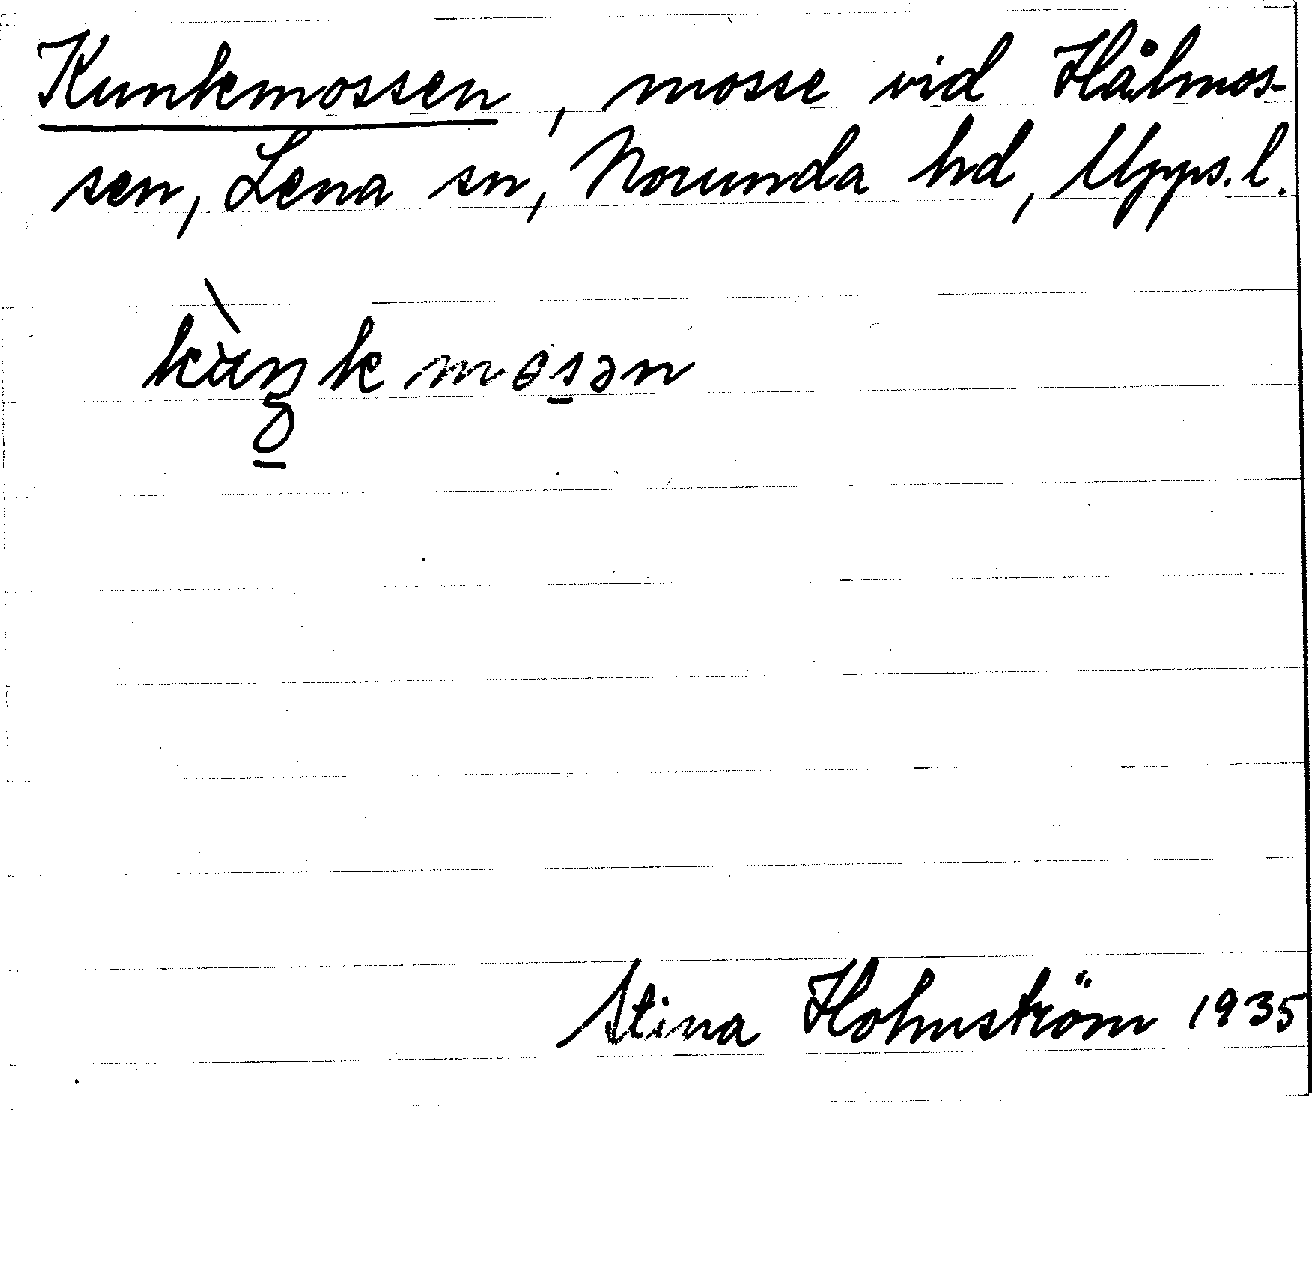 Kunkmossen, mosse vid Hålmos-
sen, Lena sn, Norunda hd, Upps. l.
Stina Holmström 1935